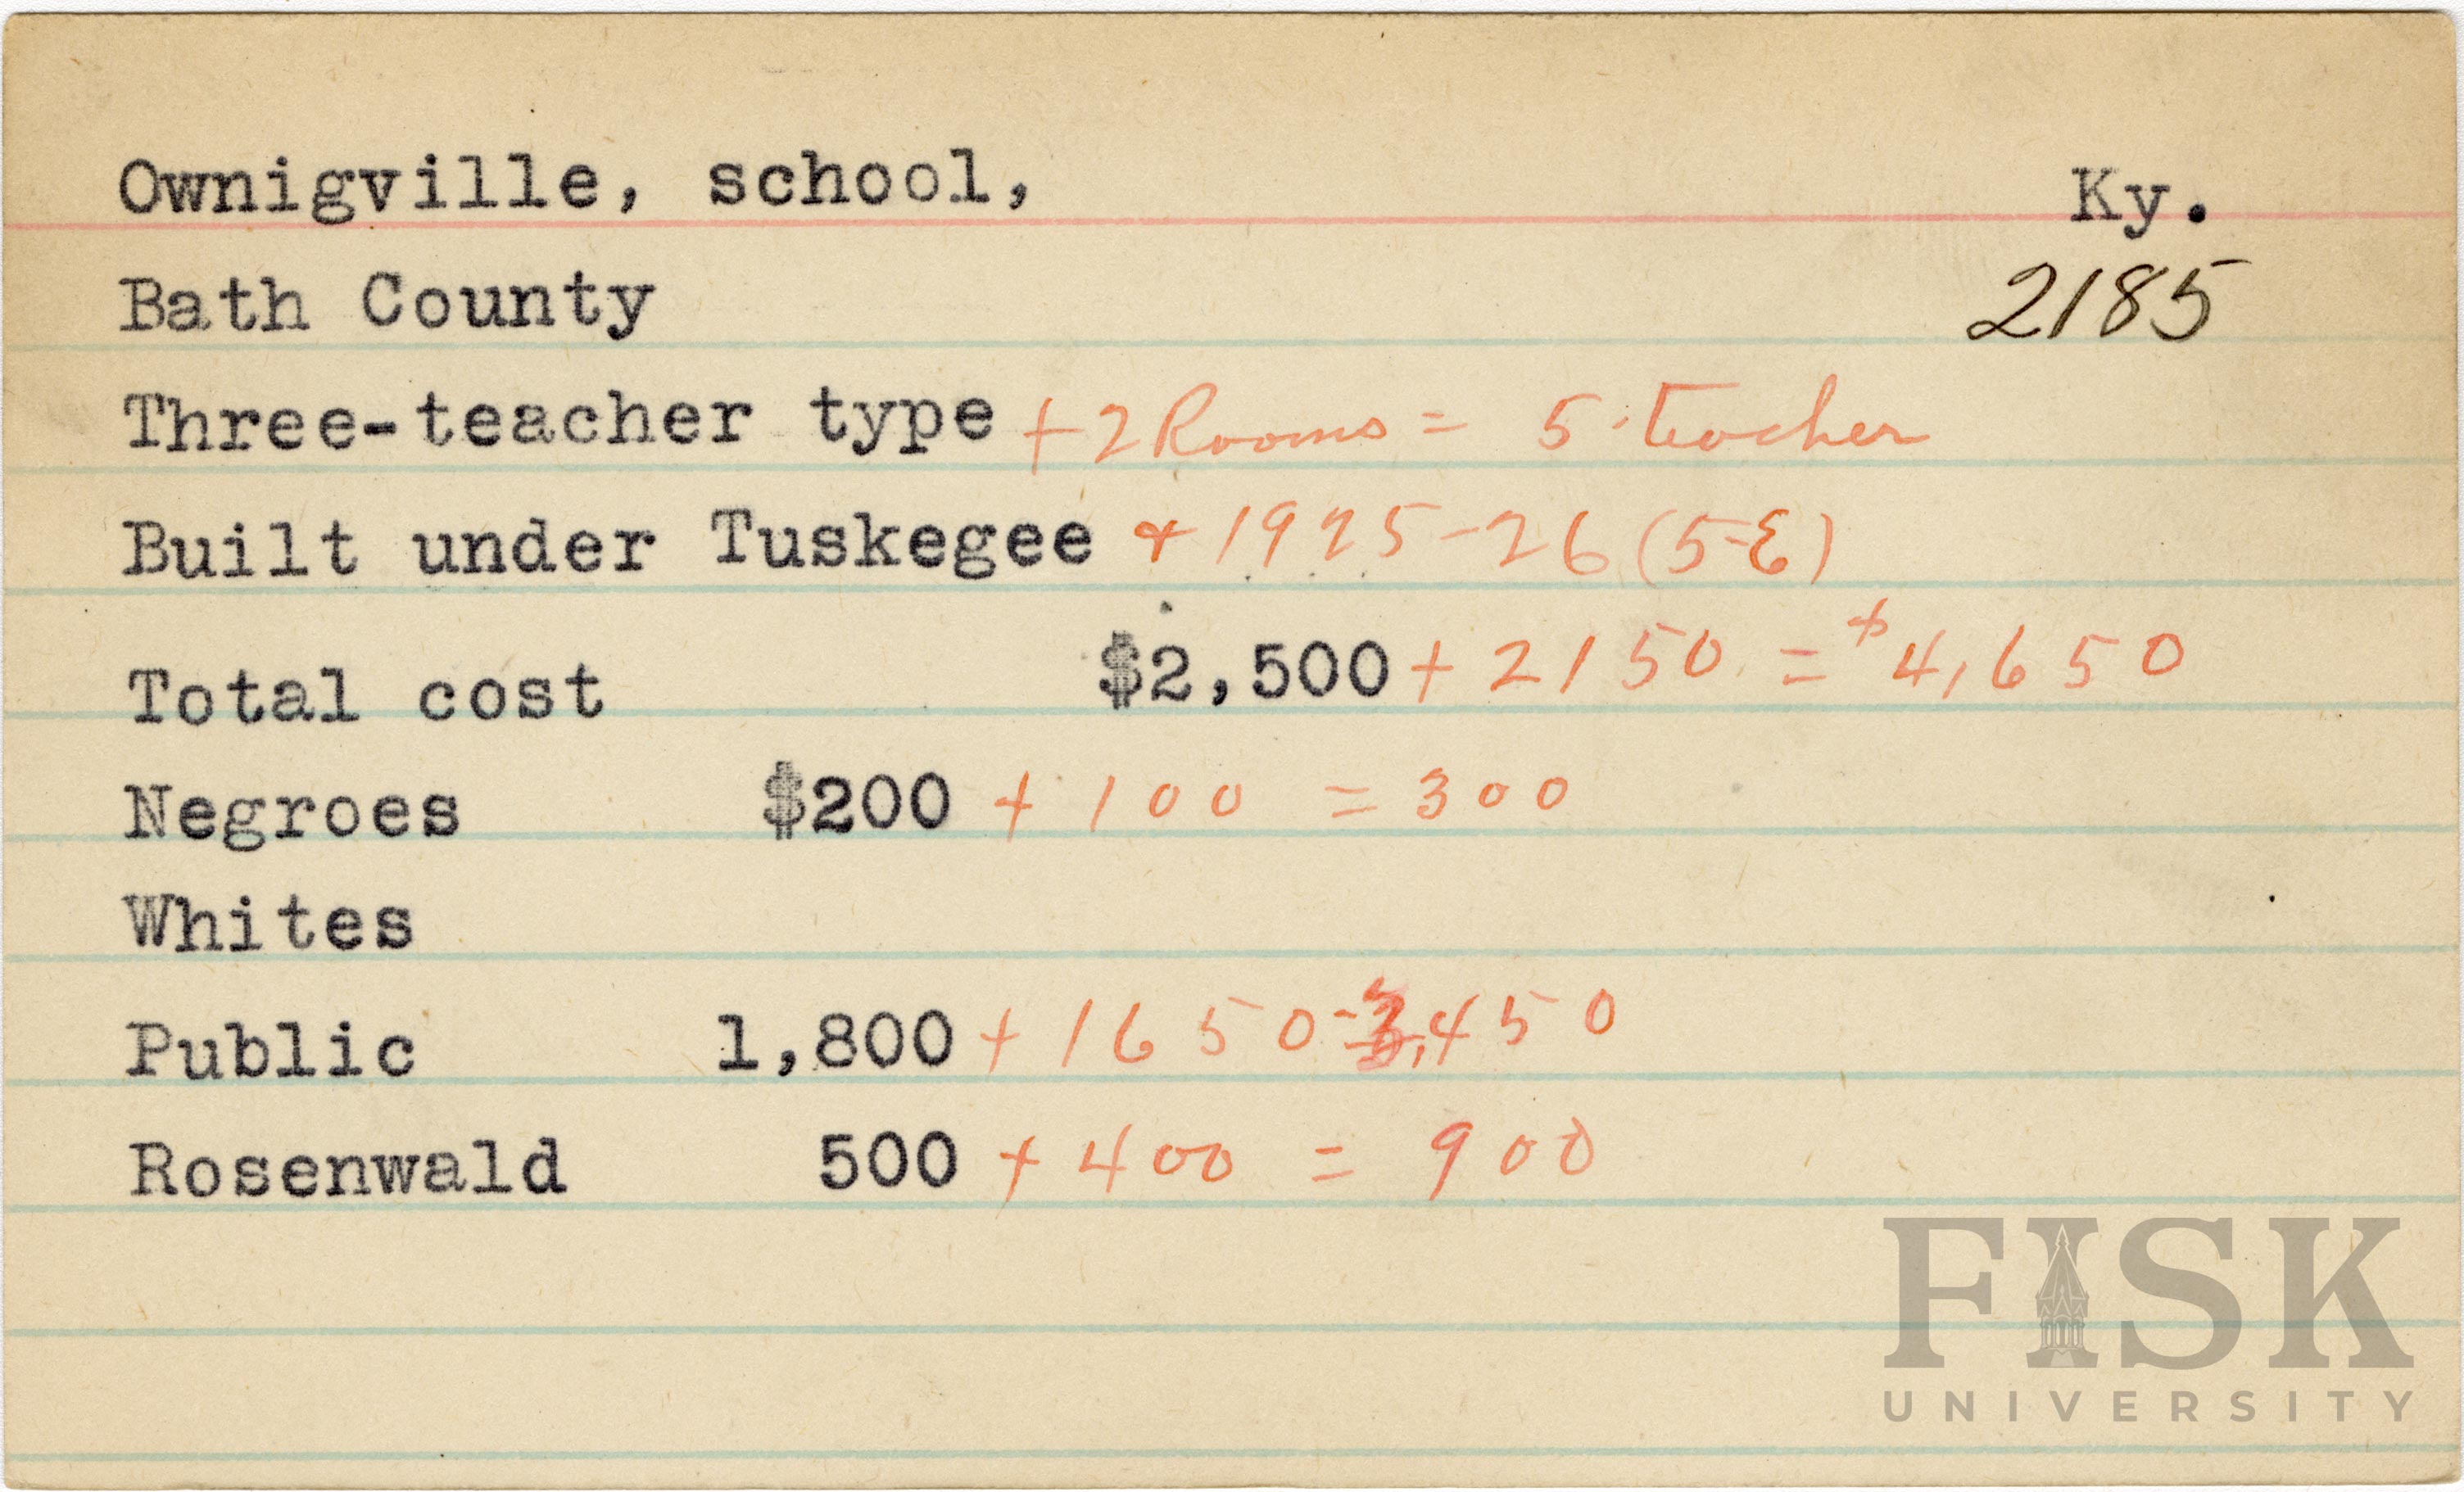 Ownigville, school, Ky.
Bath County 2185
Three-teacher type + 2 Rooms = 5-teacher
Built under Tuskegee & 1925-26 (5-E)
Total cost $2,500 + 2150 = $4,650
Negroes $200 + 100 = 300
Whites
Public 1,800 + 1650 - 3,450
Rosenwald 500 + 400 = 900
FISK
UNIVERSITY